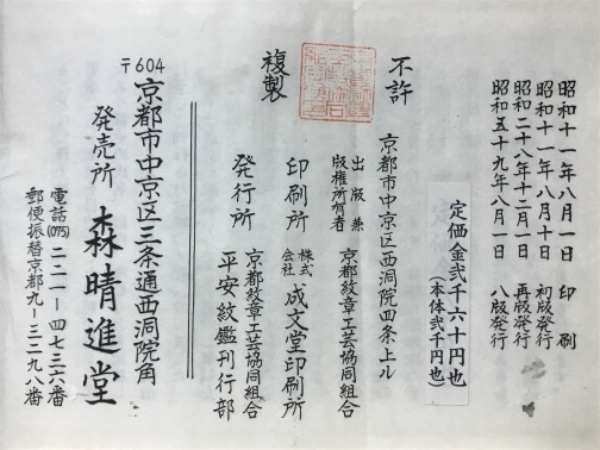 昭和十一年八月一日 印刷
昭和十一年八月十日 初版発行
昭和二十八年十二月一日 再版発行
昭和五十九年八月一日 八版発行
定価金弐千六十円也
(本体弐千円也)
不許
複製
京都市中京区西洞院四条上ル
出版兼
版権所有者 京都紋章工芸協同組合
印刷所 株式会社 成文堂印刷所
発行所 京都紋章工芸協同組合
平安紋鑑刊行部
〒604 京都市中京区三条通西洞院角
発売所 森晴進堂
電話(075)二二一-四七三六番
郵便振替京都九-三二九八番